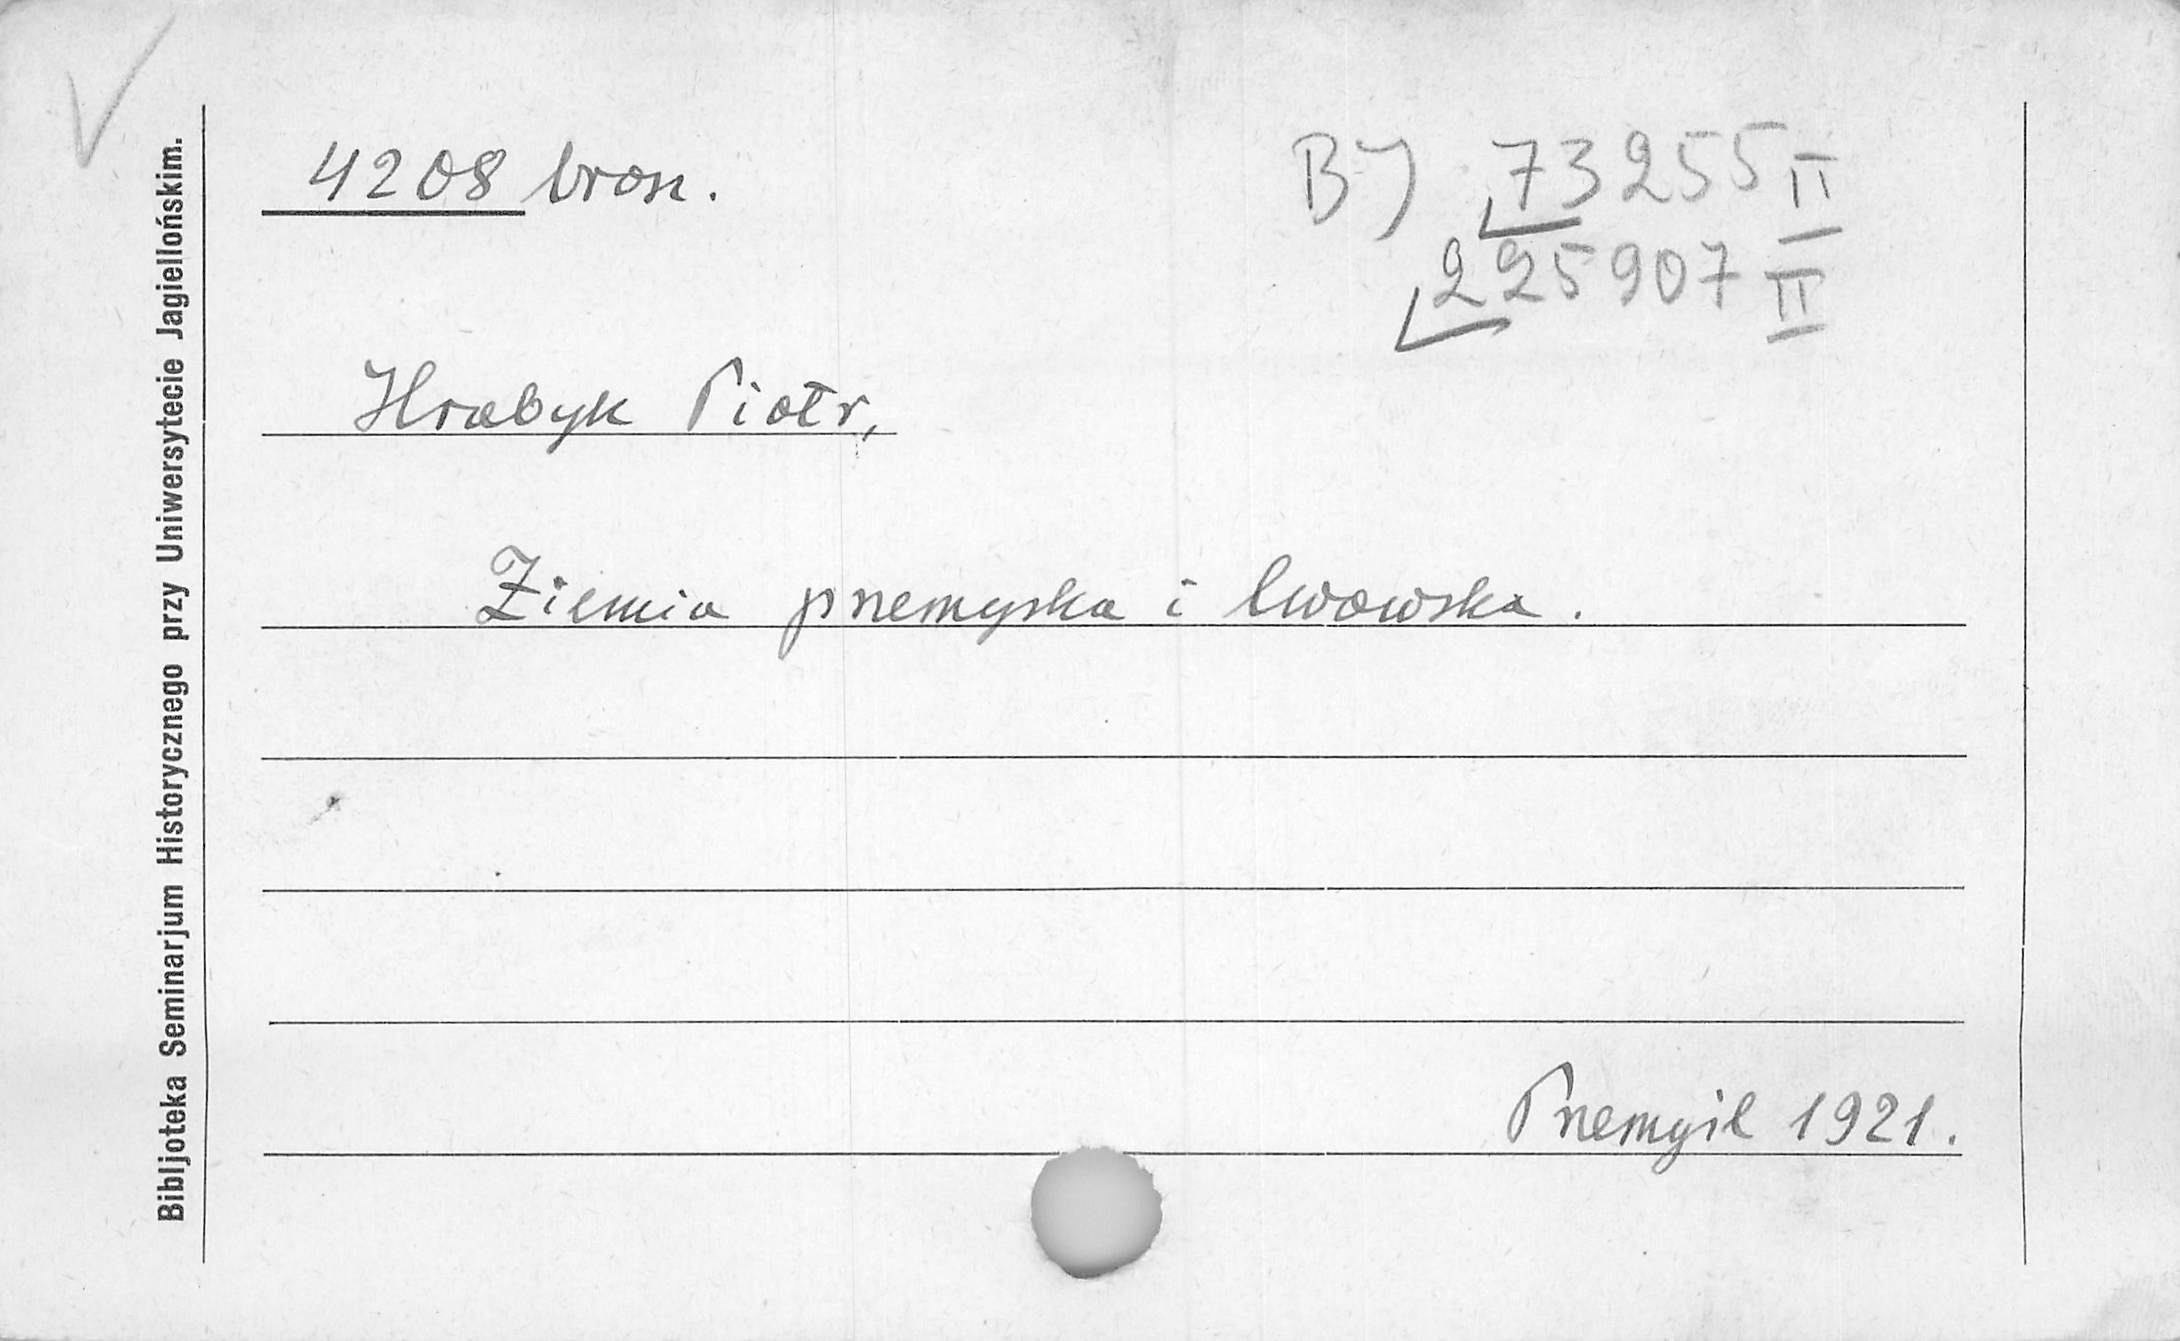 Bibljoteka Seminarjum Historycznego przy Uniwersytecie Jagiellońskim.
4208 brosz.
BJ 73255 II
225907 II
Hrabyk Piotr,
Ziemia przemyska i lwowska.
Przemyśl 1921.